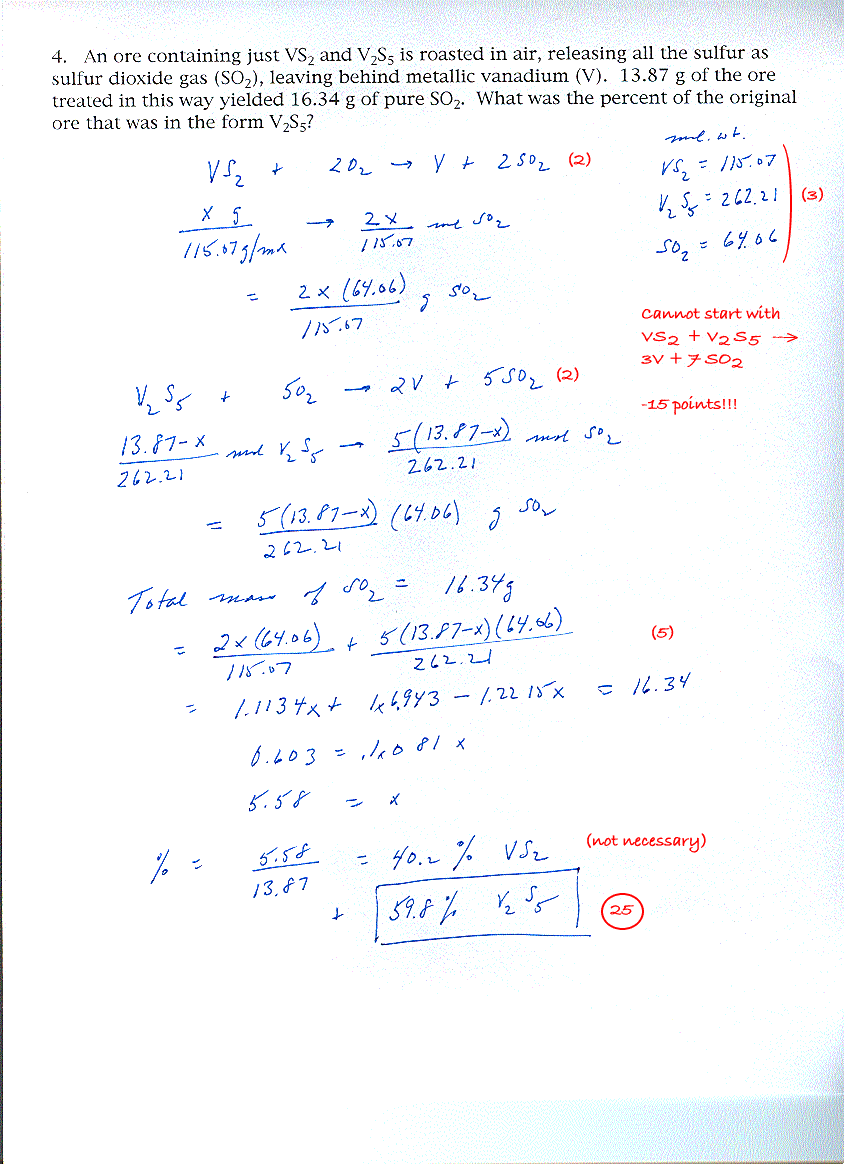 4. An ore containing just VS₂ and V₂S₅ is roasted in air, releasing all the sulfur as
sulfur dioxide gas (SO₂), leaving behind metallic vanadium (V). 13.87 g of the ore
treated in this way yielded 16.34 g of pure SO₂. What was the percent of the original
ore that was in the form V₂S₅?
mol. wt.
VS₂ + 2O₂ → V + 2SO₂ (2)
VS₂ = 115.07
V₂S₅ = 262.21 (3)
SO₂ = 64.06
x g / 115.07 g/mol → 2x / 115.07 mol SO₂
= 2x (64.06) / 115.07 g SO₂
Cannot start with
VS₂ + V₂S₅ →
3V + 7SO₂
-15 points!!!
V₂S₅ + 5O₂ → 2V + 5SO₂ (2)
13.87-x / 262.21 mol V₂S₅ → 5(13.87-x) / 262.21 mol SO₂
= 5(13.87-x) (64.06) / 262.21 g SO₂
Total mass of SO₂ = 16.34g
= 2x (64.06) / 115.07 + 5(13.87-x)(64.06) / 262.21 (5)
= 1.1134x + 16.943 - 1.2215x = 16.34
0.603 = .1081 x
5.58 = x
% = 5.58 / 13.87 = 40.2 % VS₂ (not necessary)
+ 59.8 % V₂S₅ 25